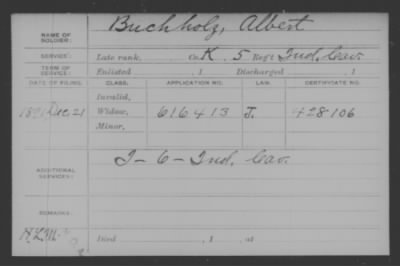 NAME OF SOLDIER: Buchholz, Albert
SERVICE: Late rank, Co. K. 5 Reg't Ind. Cav.
TERM OF SERVICE: Enlisted , 1 Discharged , 1
DATE OF FILING. CLASS. APPLICATION NO. LAW. CERTIFICATE NO.
Invalid,
1891 Dec 21 Widow, 616413 J. 428106
Minor,
ADDITIONAL SERVICES: I-6-Ind. Cav.
REMARKS:
Died , 1 , at